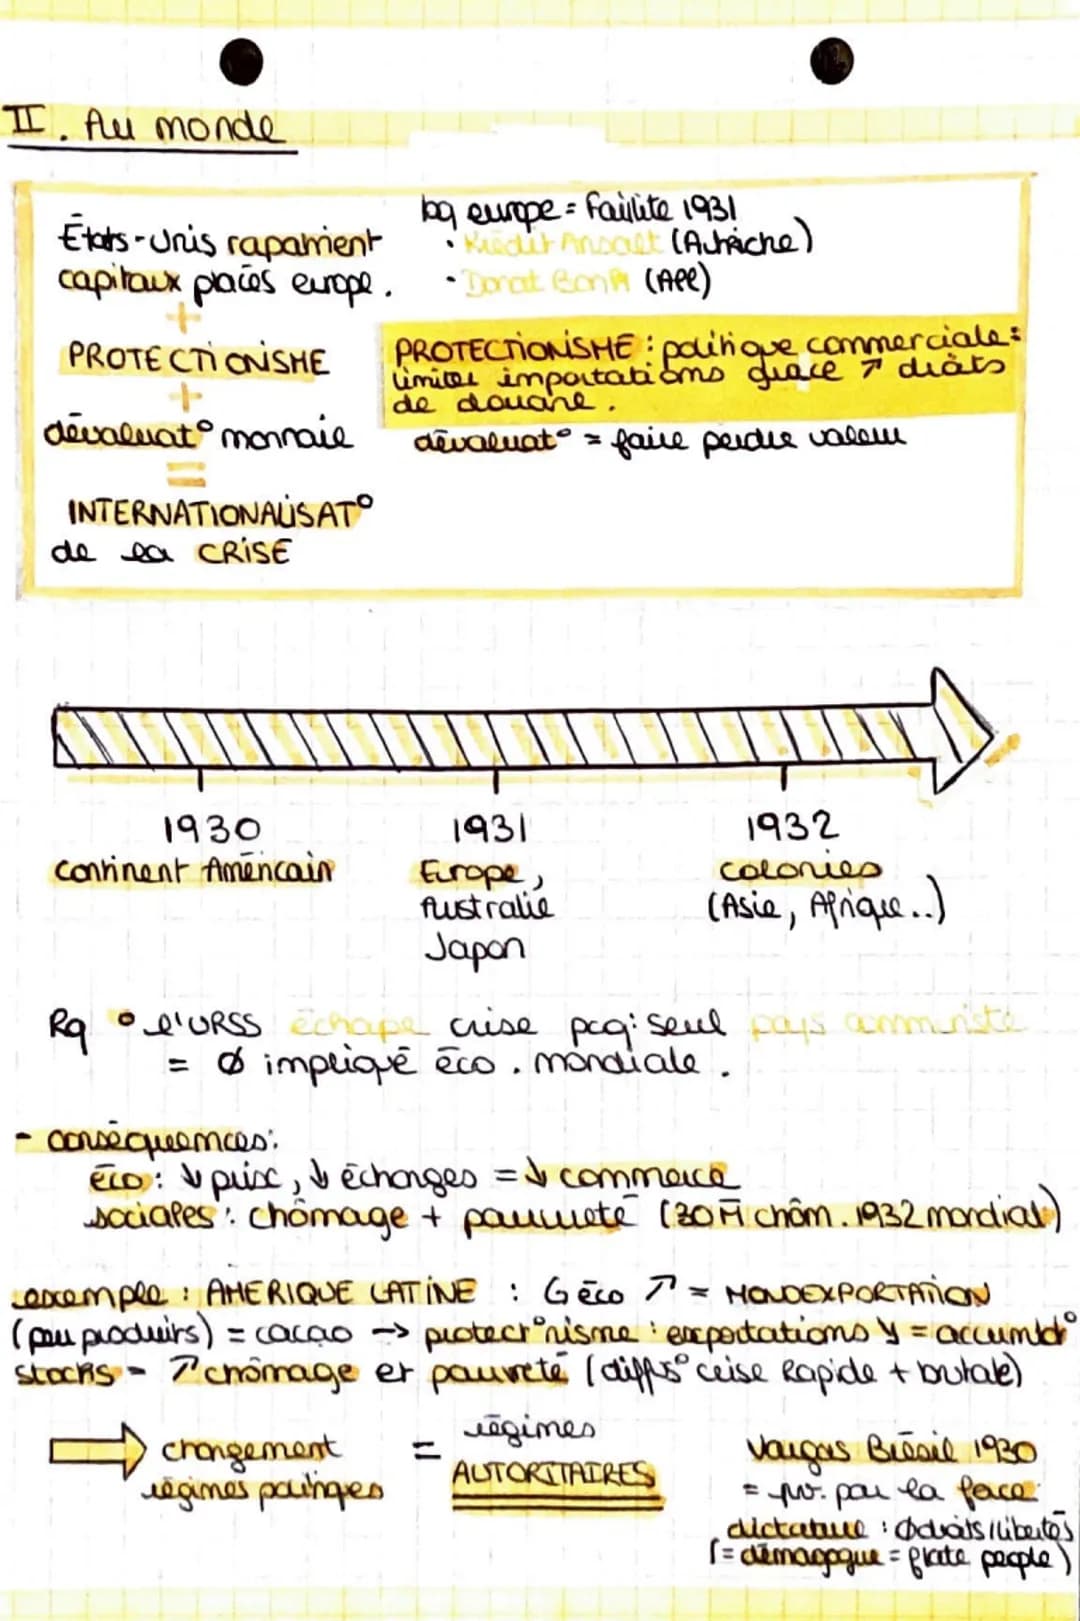 II. Au monde
États-Unis rapatrient
capitaux placés europe.
+
PROTECTIONISME
+
dévaluat° monnaie
=
INTERNATIONALISAT°
de la CRISE
bq europe = faillite 1931
• Kredit Ansalt (Autriche)
• Donat Bank (All)
PROTECTIONISME : politique commerciale :
limiter importations grace ↗ droits
de douane.
dévaluat° = faire perdre valeur
1930
continent Américain
1931
Europe,
Australie
Japon
1932
colonies
(Asie, Afrique..)
Rq • l'URSS échape crise pcq : seul pays communiste
= Ø impliqué éco. mondiale.
- conséquences :
éco : ↓ prix, ↓ échanges = ↓ commerce
sociales : chômage + pauvreté (30 M chôm. 1932 mondial)
exemple : AMERIQUE LATINE : G éco ↗ = MONOEXPORTATION
(peu produits) = cacao → protect°nisme : exportations ↘ = accumulat°
stocks = ↗ chômage et pauvreté (diffus° crise Rapide + brutale)
changement
régimes politiques
=
régimes
AUTORITAIRES
Vargas Brésil 1930
= pv. par la force
dictature : Ø droits/libertés
(= démagogue = flate peuple)